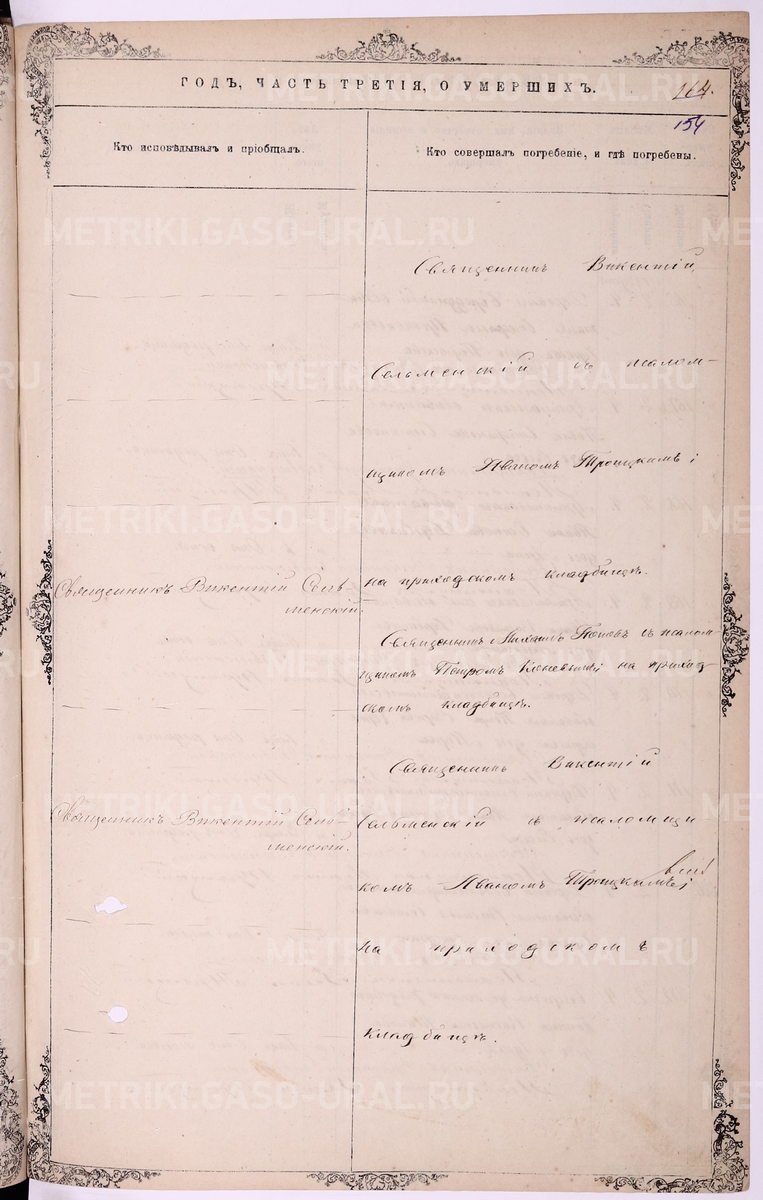 ГОДЪ, ЧАСТЬ ТРЕТІЯ, О УМЕРШИХЪ.
164.
154
Кто исповѣдывалъ и пріобщалъ.
Кто совершалъ погребеніе, и гдѣ погребены.
Священникъ Викентій
Сельменскій съ псалом-
щикомъ Иваномъ Троицкимъ
на приходскомъ кладбищѣ.
Священникъ Викентій Сель-
менскій.
Священникъ Михаилъ Поповъ съ псалом
щикомъ Петромъ на приход
скомъ кладбищѣ.
Священникъ Викентій
Сельменскій съ псаломщи
комъ Иваномъ Троицкимъ
на приходскомъ
кладбищѣ.
Священникъ Викентій Сель-
менскій.
METRIKI.GASO-URAL.RU